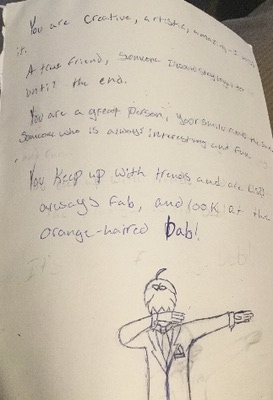 You are creative, artistic, amazing is
it.
A true friend, someone I
until the end.
You are a great person, your smile
Someone who is always interesting and fun.
You keep up with trends and are
always fab, and look at the
orange-haired Dab!